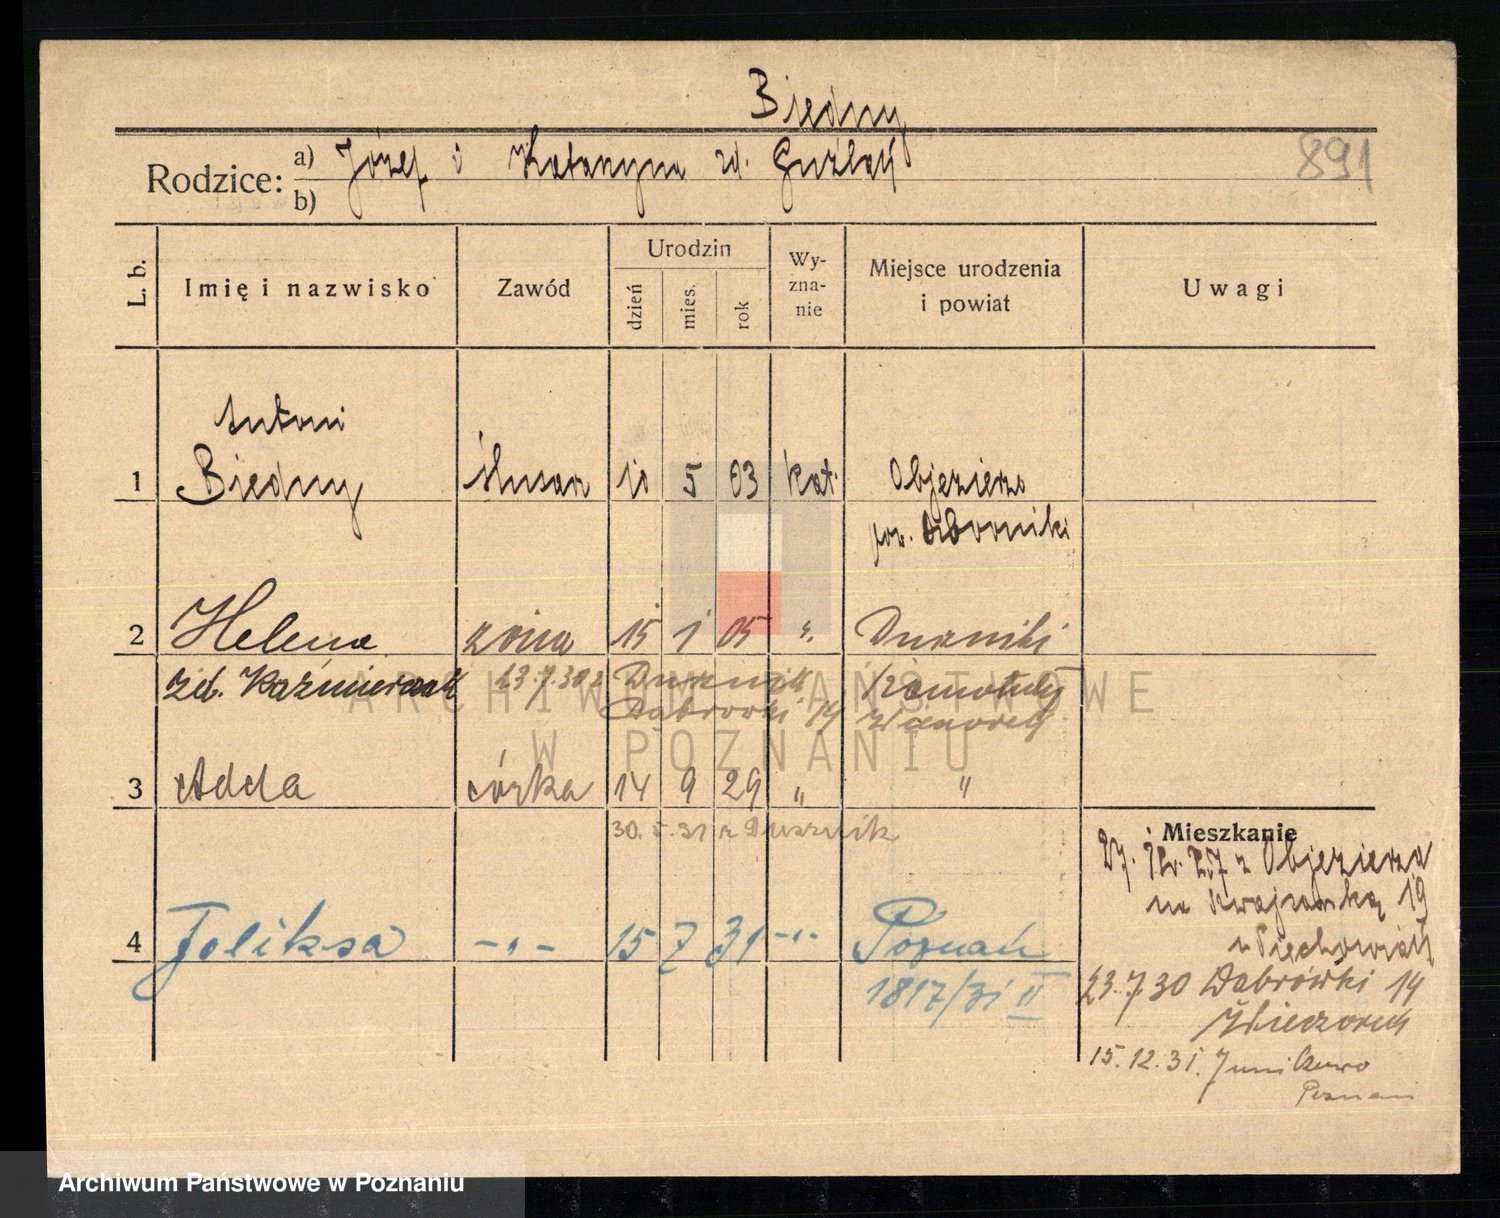 Biedny
891
Rodzice: a) Józef i Katarzyna zd.
b)
L. b.
Imię i nazwisko
Zawód
Urodzin
dzień
mies.
rok
Wy-
zna-
nie
Miejsce urodzenia
i powiat
Uwagi
Antoni
1 Biedny ślusarz 10 5 03 kat. Objezierze
pow. Oborniki
2 Helena żona 15 1 05 ". Duszniki
zd. Kaźmierczak 23.7.30 z Dusznik
Dąbrówki 14
3 Adela córka 14 9 29 " "
30.5.31 z Dusznik
Mieszkanie
27. z Objezierza
na 19
4 Feliksa -"- 15 7 31 -"- Poznań
1817/31 II
23.7.30 Dąbrówki 14
Wieczorek
15.12.31. Junikowo
Poznań
ARCHIWUM PAŃSTWOWE
W POZNANIU
Archiwum Państwowe w Poznaniu